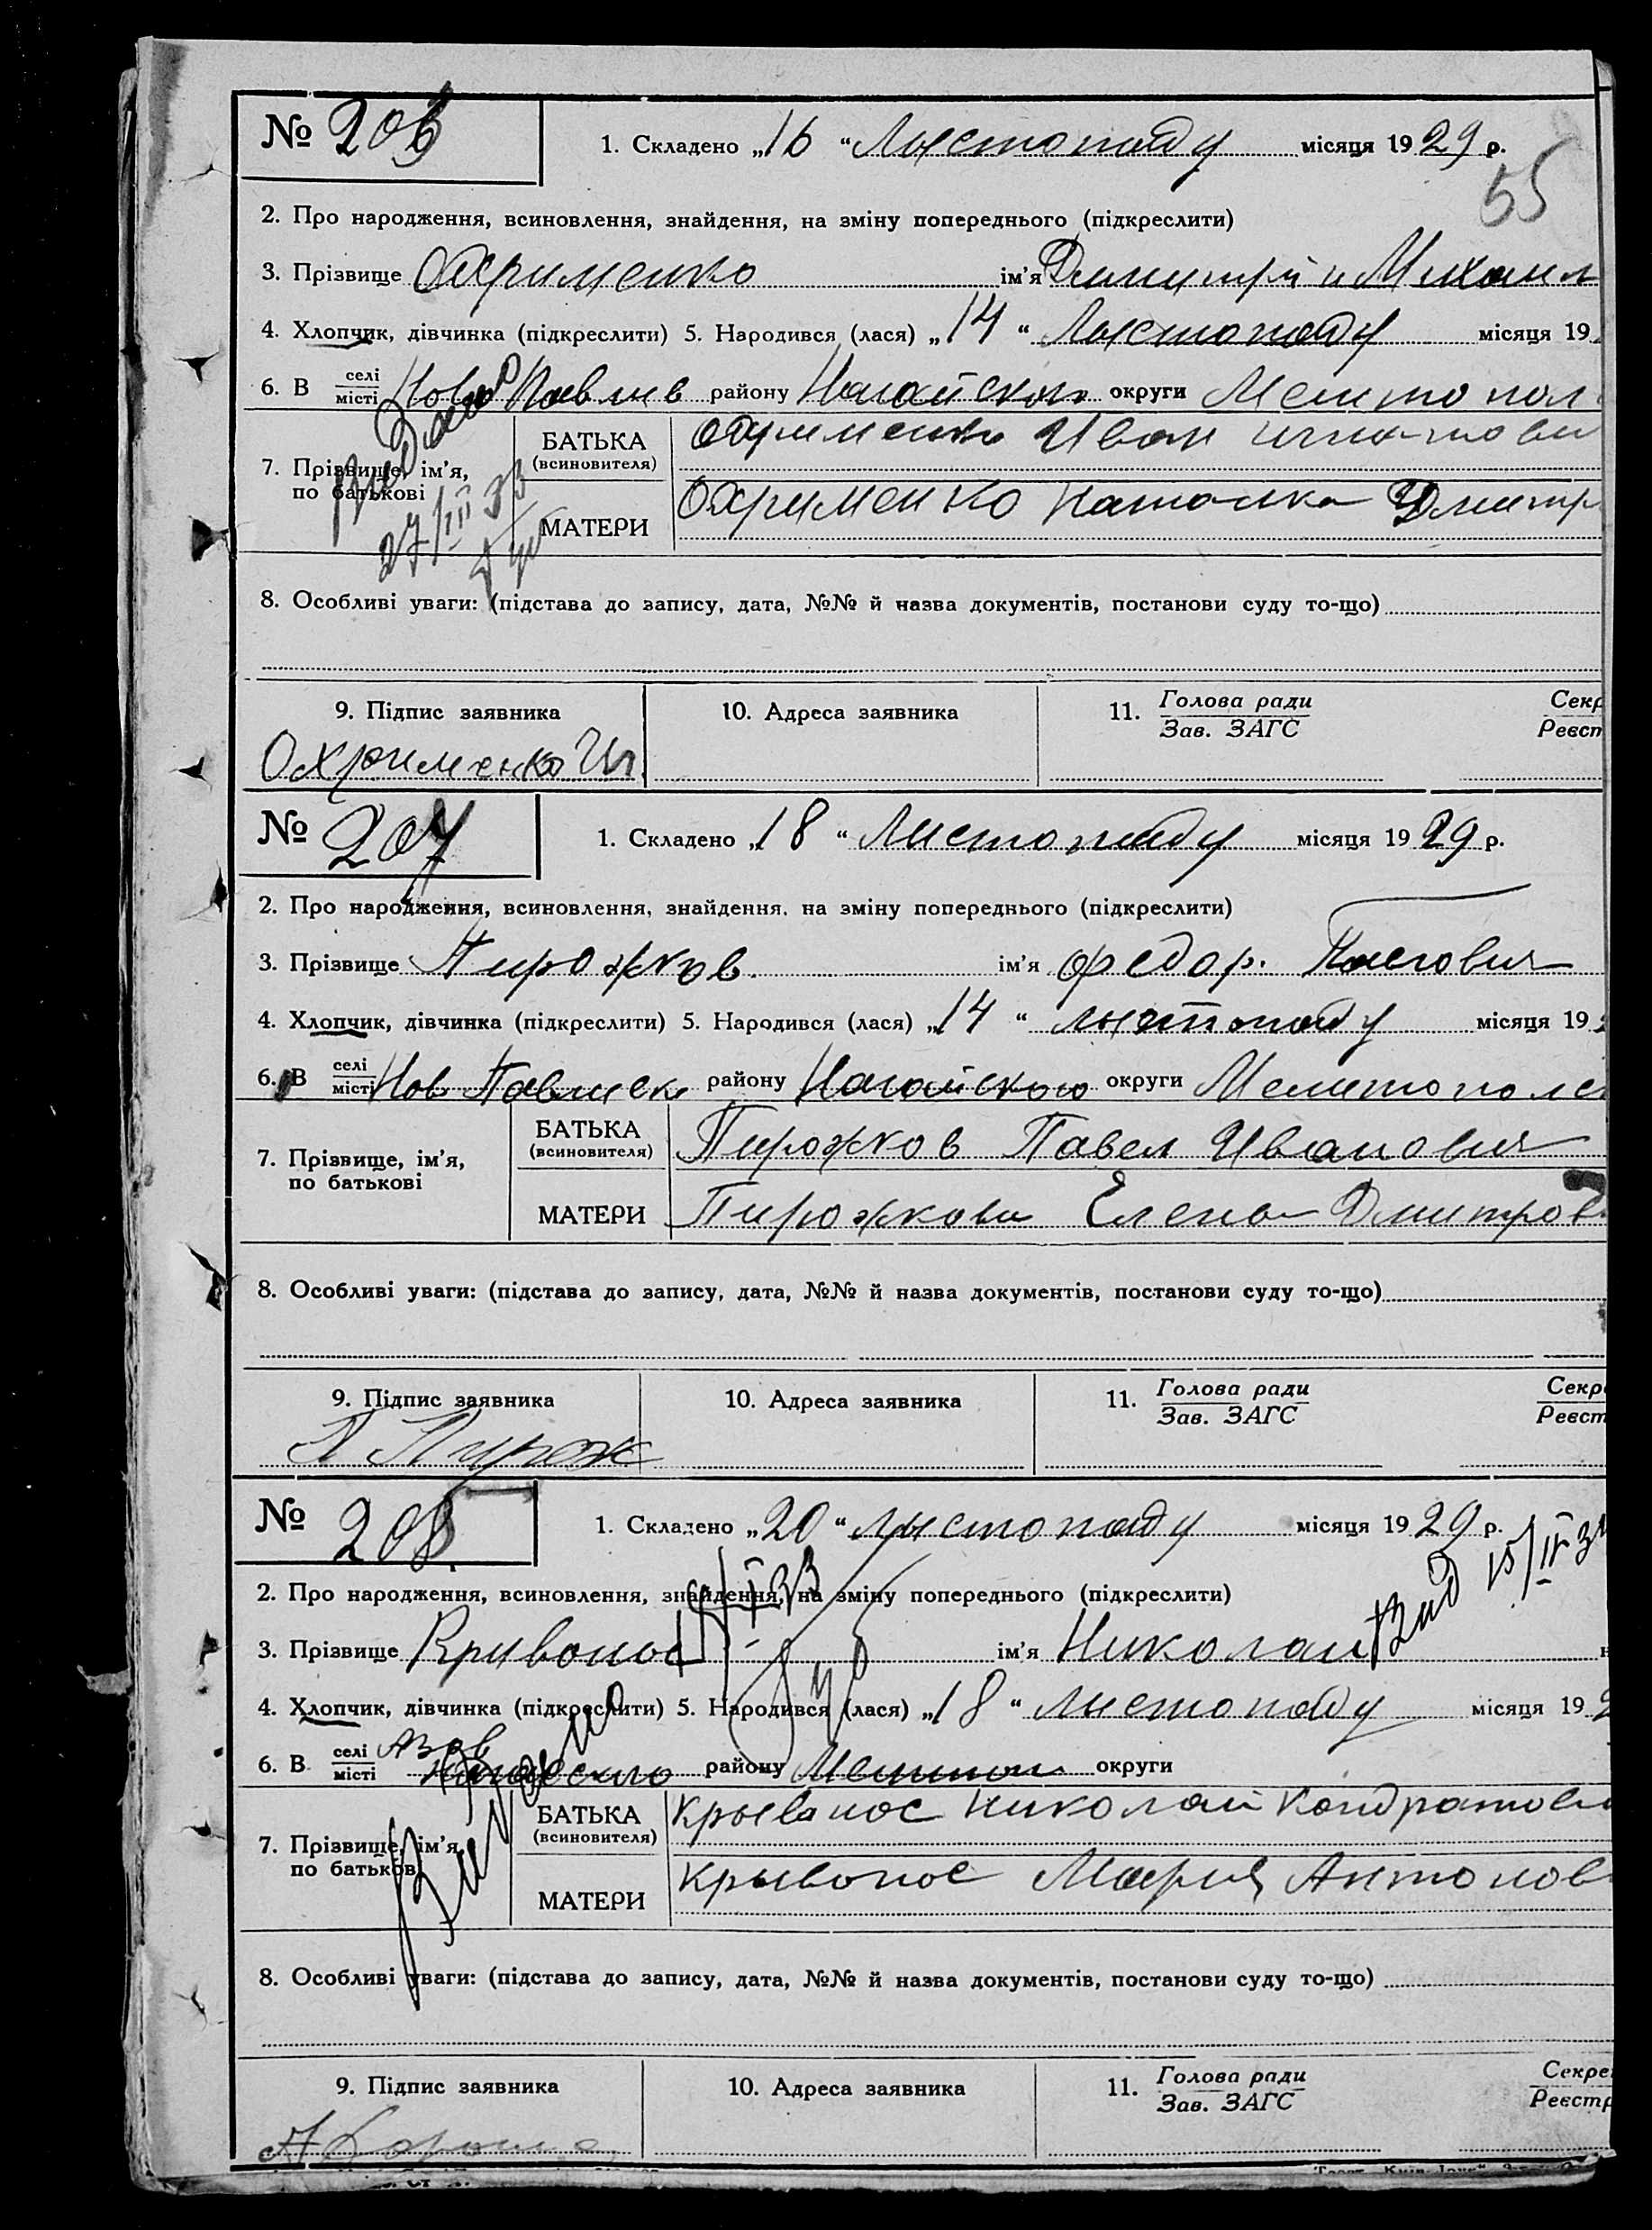 № 206
1. Складено „16“ Лыстопаду місяця 1929 р.
55
2. Про народження, всиновлення, знайдення, на зміну попереднього (підкреслити)
3. Прізвище Охрименко ім'я Димитрій и Михаил
4. Хлопчик, дівчинка (підкреслити) 5. Народився (лася) „14“ Лыстопаду місяця 19
6. В селі/місті Ново Павлив району Ногайского округи Мелитопол
7. Прізвище, ім'я, по батькові
БАТЬКА (всиновителя) Охрименко Иван Игнатови
МАТЕРИ Охрименко Наталка Дмитр
Видано 27/III 33
8. Особливі уваги: (підстава до запису, дата, №№ й назва документів, постанови суду то-що)
9. Підпис заявника 10. Адреса заявника 11. Голова ради Секр
Зав. ЗАГС Реєст
Охрименко
№ 207
1. Складено „18“ Листопаду місяця 1929 р.
2. Про народження, всиновлення, знайдення, на зміну попереднього (підкреслити)
3. Прізвище Пирожков ім'я Федор.
4. Хлопчик, дівчинка (підкреслити) 5. Народився (лася) „14“ листопаду місяця 19
6. В селі/місті Нов Павлиск району Ногайского округи Мелитополс
7. Прізвище, ім'я, по батькові
БАТЬКА (всиновителя) Пирожков Павел Иванович
МАТЕРИ Пирожкова Елена Дмитров
8. Особливі уваги: (підстава до запису, дата, №№ й назва документів, постанови суду то-що)
9. Підпис заявника 10. Адреса заявника 11. Голова ради Секре
Зав. ЗАГС Реєст
П Пирож
№ 208
1. Складено „20“ лыстопаду місяця 1929 р.
2. Про народження, всиновлення, знайдення, на зміну попереднього (підкреслити)
3. Прізвище Кривонос ім'я Николай
4. Хлопчик, дівчинка (підкреслити) 5. Народився (лася) „18“ листопаду місяця 19
6. В селі/місті Азов району Мелитоп округи
7. Прізвище, ім'я, по батькові
БАТЬКА (всиновителя) Крывонос Николай Кондратови
МАТЕРИ Крывонос Мария Антонов
Видано
8. Особливі уваги: (підстава до запису, дата, №№ й назва документів, постанови суду то-що)
9. Підпис заявника 10. Адреса заявника 11. Голова ради Секре
Зав. ЗАГС Реєстр